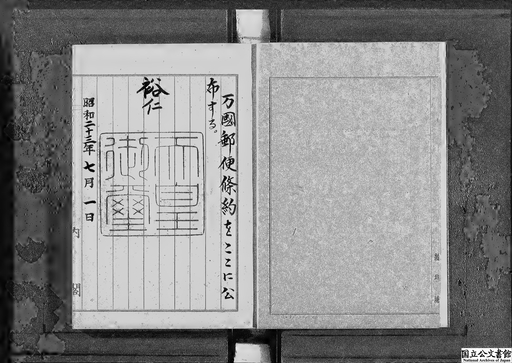 万國郵便條約をここに公
布する。
裕仁
天皇
御璽
昭和二十三年七月一日
内閣
国立公文書館
National Archives of Japan